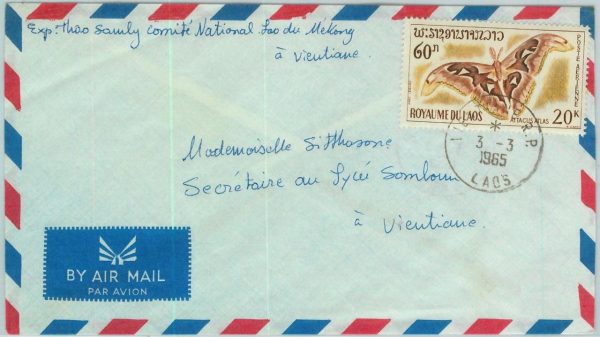 Exp: Thao Samly Comité National Lao du Mékong
à Vientiane.
ພຣະຣາຊອານາຈັກລາວ
60ກ
POSTE AERIENNE
ROYAUME DU LAOS
ATTACUS ATLAS
20K
R.P.
3 - 3
1965
LAOS
Mademoiselle Sitthosone
Secrétaire au Lycée Somboun
à Vientiane.
BY AIR MAIL
PAR AVION